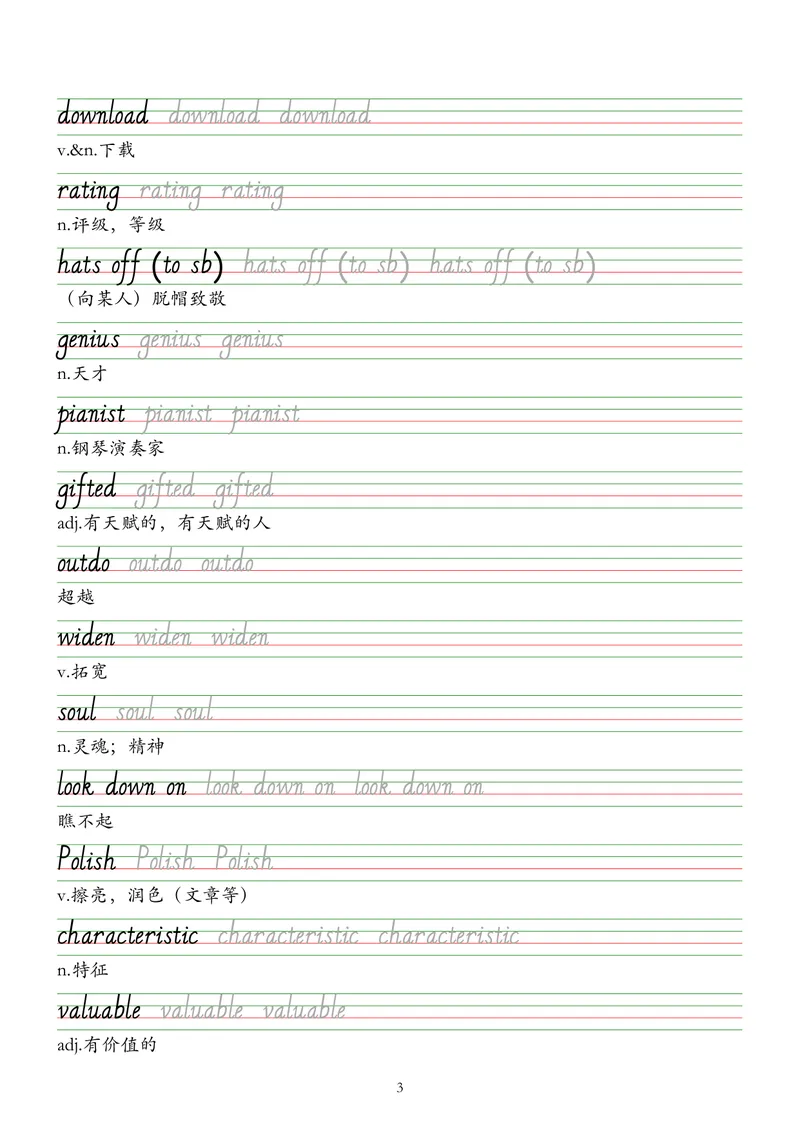 download download download
v.&n.下载
rating rating rating
n.评级，等级
hats off (to sb) hats off (to sb) hats off (to sb)
（向某人）脱帽致敬
genius genius genius
n.天才
pianist pianist pianist
n.钢琴演奏家
gifted gifted gifted
adj.有天赋的，有天赋的人
outdo outdo outdo
超越
widen widen widen
v.拓宽
soul soul soul
n.灵魂；精神
look down on look down on look down on
瞧不起
Polish Polish Polish
v.擦亮，润色（文章等）
characteristic characteristic characteristic
n.特征
valuable valuable valuable
adj.有价值的
3